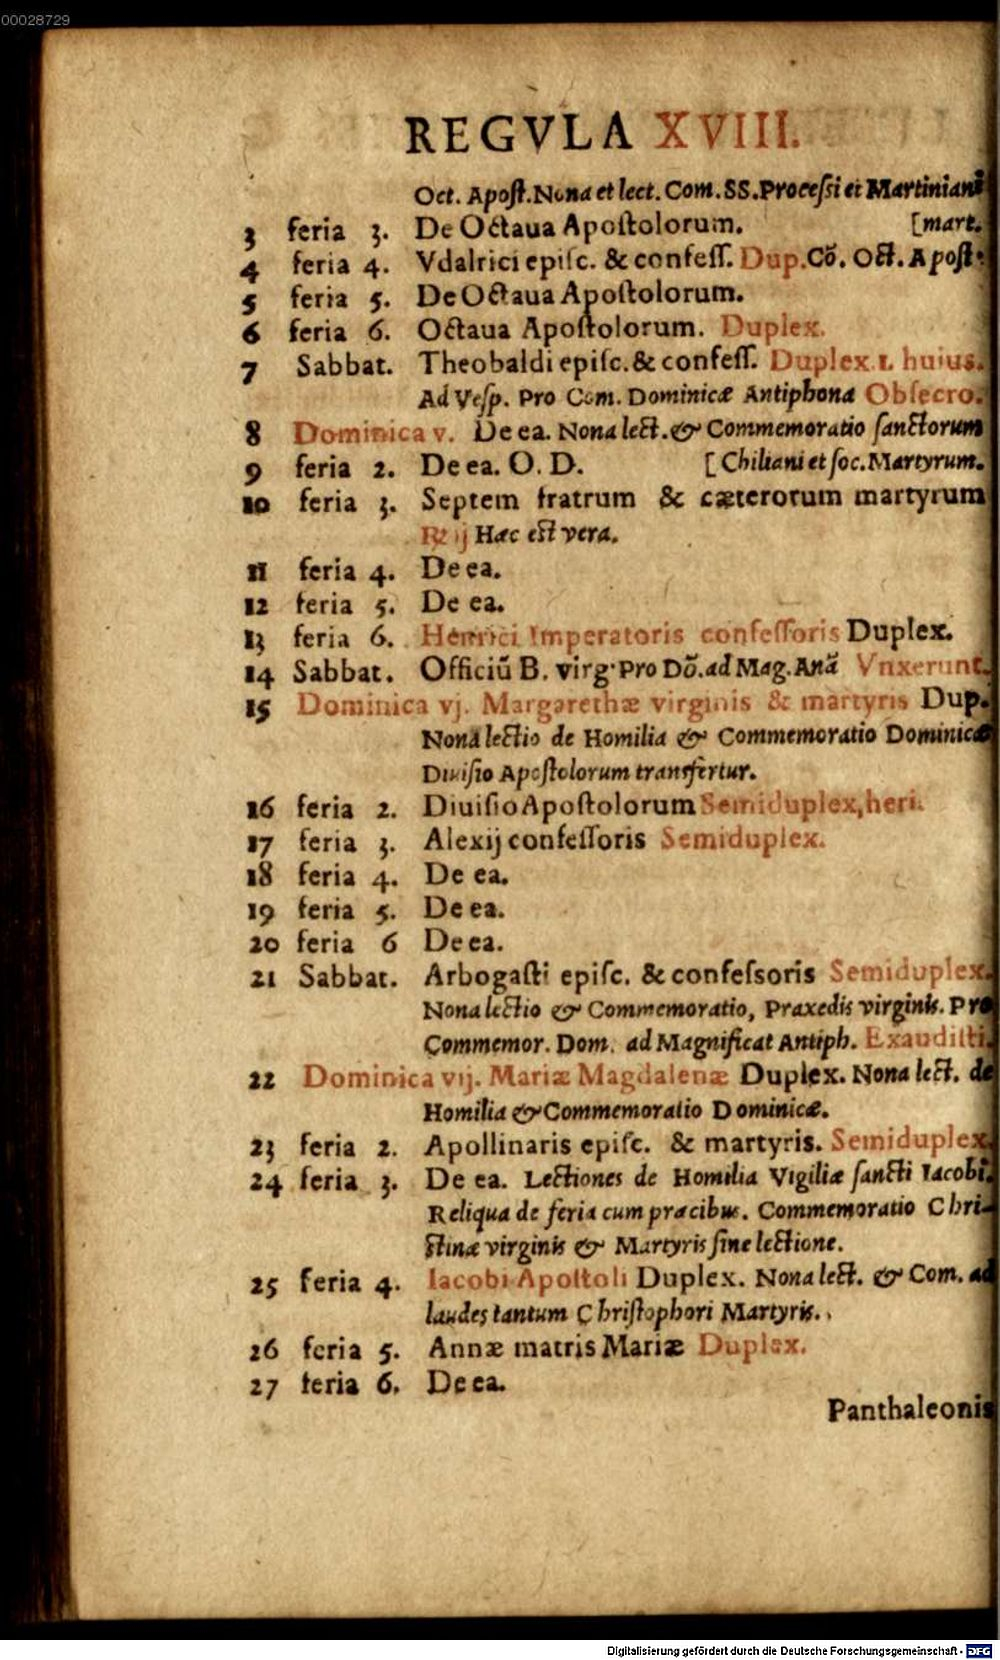 00028729
REGVLA XVIII.
Oct. Apoſt. Nona et lect. Com. SS. Proceſsi et Martiniani
3 feria 3. De Octaua Apoſtolorum. [mart.
4 feria 4. Vdalrici epiſc. & confeſſ. Dup. Cõ. Oct. Apoſt.
5 feria 5. De Octaua Apoſtolorum.
6 feria 6. Octaua Apoſtolorum. Duplex.
7 Sabbat. Theobaldi epiſc. & confeſſ. Duplex 1. huius.
Ad Veſp. Pro Com. Dominicæ Antiphona Obſecro.
8 Dominica v. De ea. Nona lect. & Commemoratio ſanctorum
9 feria 2. De ea. O. D. [Chiliani et ſoc. Martyrum.
10 feria 3. Septem fratrum & cæterorum martyrum
℞ ij Hæc eſt vera.
11 feria 4. De ea.
12 feria 5. De ea.
13 feria 6. Henrici Imperatoris confeſſoris Duplex.
14 Sabbat. Officiũ B. virg. Pro Dõ. ad Mag. Anã Vnxerunt.
15 Dominica vj. Margarethæ virginis & martyris Dup.
Nona lectio de Homilia & Commemoratio Dominicæ
Diuiſio Apoſtolorum transfertur.
16 feria 2. Diuiſio Apoſtolorum Semiduplex, heri.
17 feria 3. Alexij confeſſoris Semiduplex.
18 feria 4. De ea.
19 feria 5. De ea.
20 feria 6 De ea.
21 Sabbat. Arbogaſti epiſc. & confeſsoris Semiduplex.
Nona lectio & Commemoratio, Praxedis virginis. Pro
Commemor. Dom. ad Magnificat Antiph. Exaudiſti.
22 Dominica vij. Mariæ Magdalenæ Duplex. Nona lect. de
Homilia & Commemoratio Dominicæ.
23 feria 2. Apollinaris epiſc. & martyris. Semiduplex.
24 feria 3. De ea. Lectiones de Homilia Vigiliæ ſancti Iacobi.
Reliqua de feria cum præcibus. Commemoratio Chri-
ſtinæ virginis & Martyris ſine lectione.
25 feria 4. Iacobi Apoſtoli Duplex. Nona lect. & Com. ad
laudes tantum Chriſtophori Martyris.
26 feria 5. Annæ matris Mariæ Duplex.
27 feria 6. De ea.
Panthaleonis
Digitalisierung gefördert durch die Deutsche Forschungsgemeinschaft - DFG